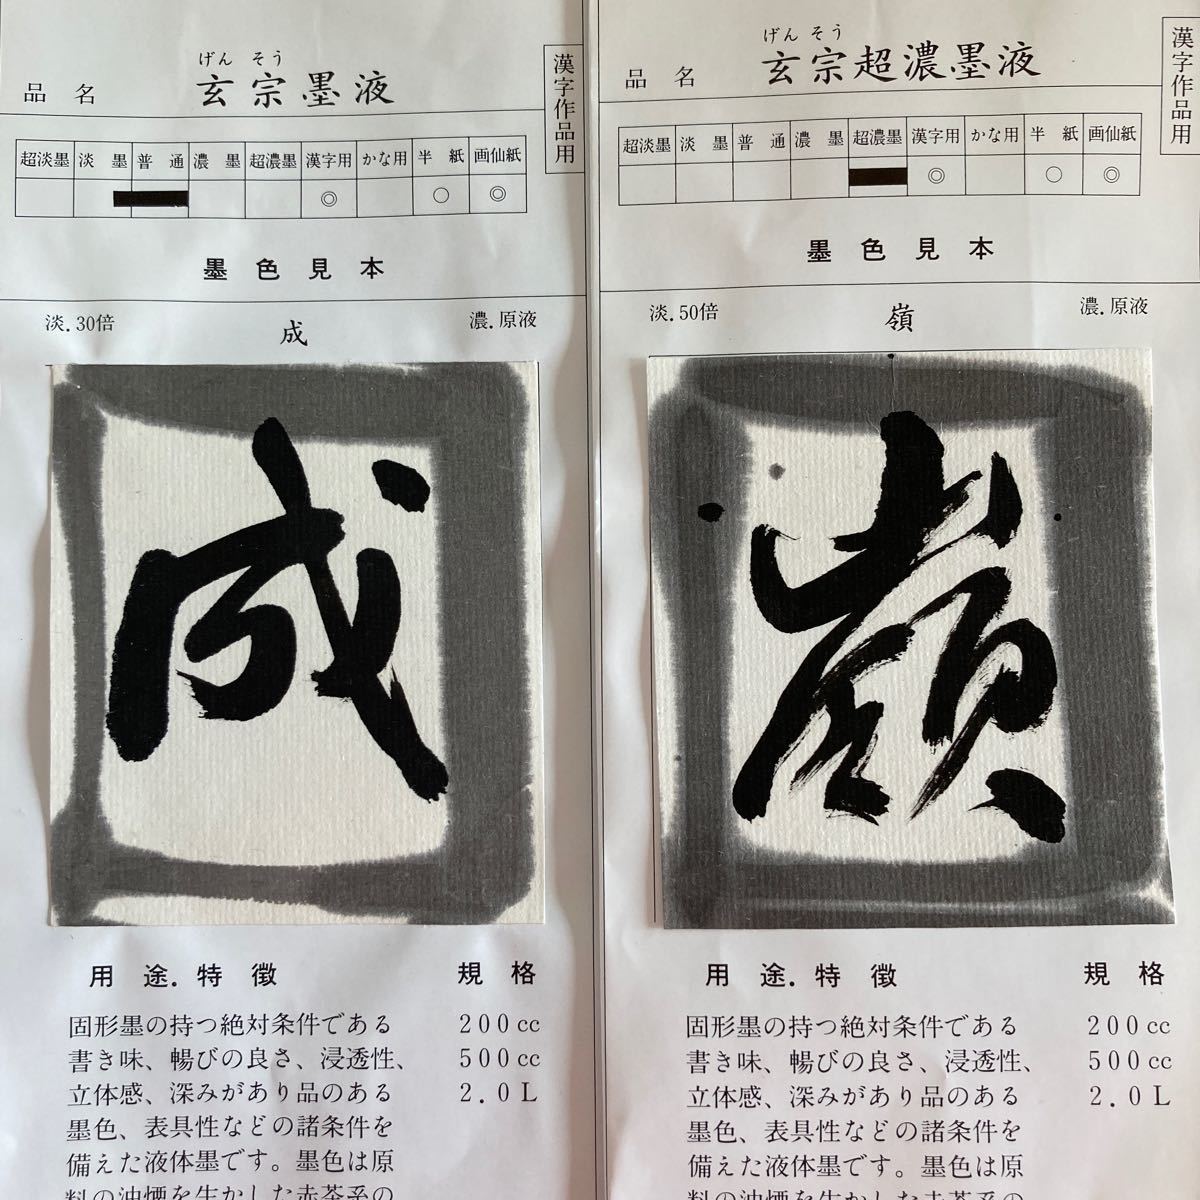 げん そう
玄宗墨液
品名
漢字作品用
超淡墨 淡墨 普通 濃墨 超濃墨 漢字用 かな用 半紙 画仙紙
◎ ○ ◎
墨色見本
淡.30倍 成 濃.原液
成
用途.特徴 規格
固形墨の持つ絶対条件である 200cc
書き味、暢びの良さ、浸透性、 500cc
立体感、深みがあり品のある 2.0L
墨色、表具性などの諸条件を
備えた液体墨です。墨色は原
料の油煙を生かした赤茶系の
げん そう
玄宗超濃墨液
品名
漢字作品用
超淡墨 淡墨 普通 濃墨 超濃墨 漢字用 かな用 半紙 画仙紙
◎ ○ ◎
墨色見本
淡.50倍 嶺 濃.原液
嶺
用途.特徴 規格
固形墨の持つ絶対条件である 200cc
書き味、暢びの良さ、浸透性、 500cc
立体感、深みがあり品のある 2.0L
墨色、表具性などの諸条件を
備えた液体墨です。墨色は原
料の油煙を生かした赤茶系の